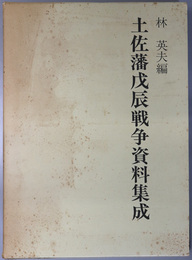 林英夫編
土佐藩戊辰戦争資料集成